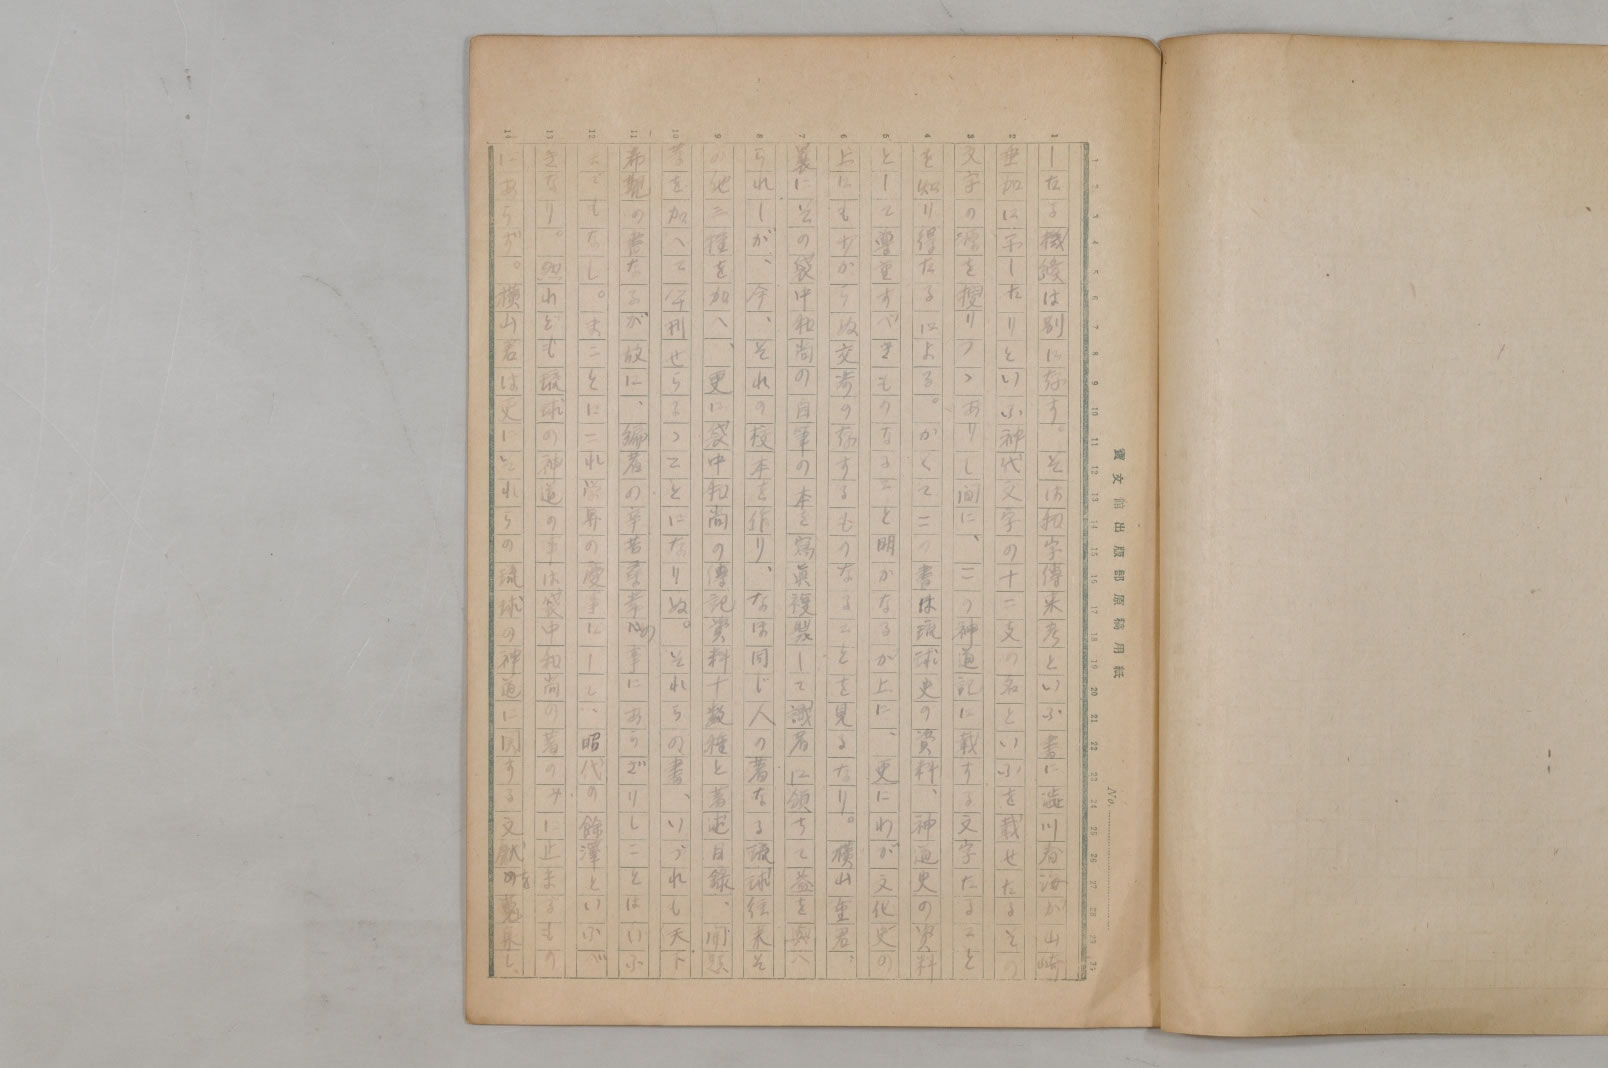 寶文館出版部原稿用紙
No.
1 2 3 4 5 6 7 8 9 10 11 12 13 14 15 16 17 18 19 20 21 22 23 24 25 26 27 28 29 30
1 2 3 4 5 6 7 8 9 10 11 12 13 14
したる機縁は別に存す。そは和字傳來考といふ書に澁川春海が山崎
垂加に示したりといふ神代文字の十二支の名といふを載せたるその
文字の源を捜りつゝありし間に、この神道記に載する文字たること
を知り得たるによる。かくてこの書は琉球史の資料、神道史の資料
として尊重すべきものなること明かなるが上に、更にわが文化史の
上にも少からぬ交渉の存するものなることを見るなり。横山重君、
曩にその袋中和尚の自筆の本を寫眞複製して識者に頒ちて益を與へ
られしが、今、それの校本を作り、なほ同じ人の著なる琉球往來そ
の他二種を加へ、更に袋中和尚の傳記資料十數種と著述目録、開題
等を加へて公刊せらるゝことになりぬ。それらの書、いづれも天下
希覯の書なるが故に、編者の辛苦尋常の事にあらざりしことはいふ
までもなし。まことにこれ學界の慶事にして、昭代の餘澤といふべ
きなり。然れども琉球の神道の事は袋中和尚の著のみに止まるもの
にあらず。横山君は更にそれらの琉球の神道に関する文獻を蒐集し、